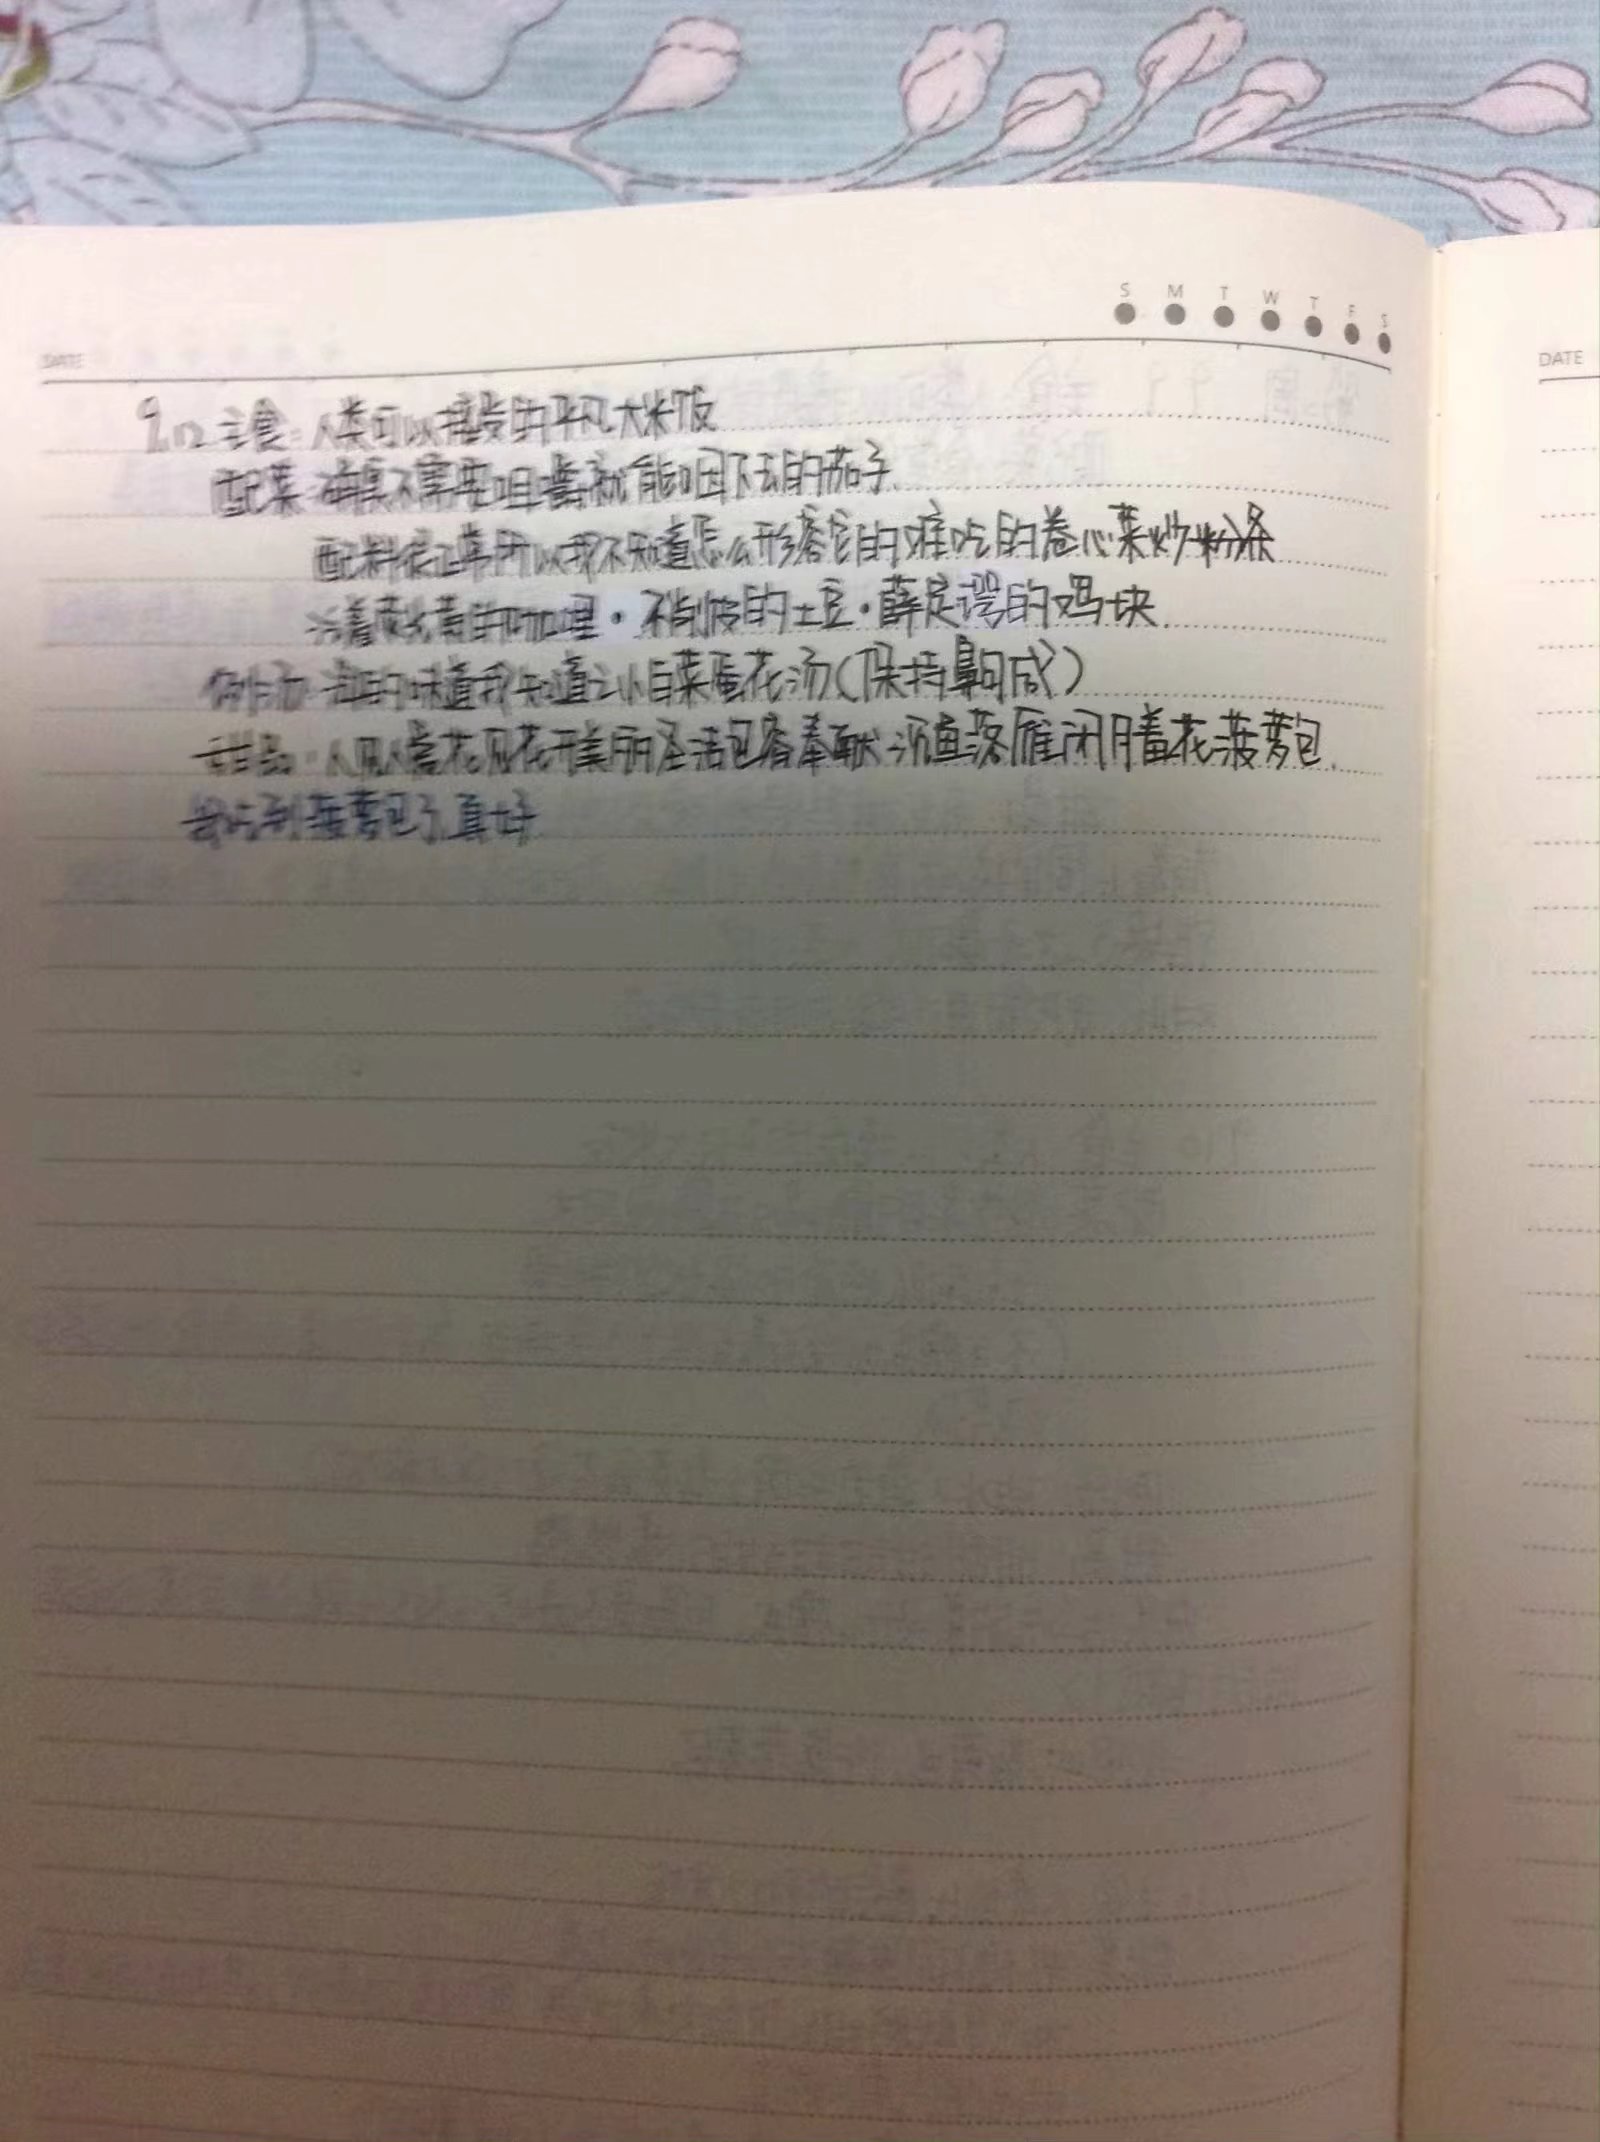 S M T W T F S
DATE
DATE
9.12 主食:人类可以接受的平凡大米饭
配菜:不需要咀嚼就能咽下去的茄子
配料很正常所以我不知道怎么形容它的难吃的卷心菜炒粉条
的咖喱·不削皮的土豆·薛定谔的鸡块
味道我知道之小白菜蛋花汤(保持鼻)
甜品:人见人爱花见花开美丽圣洁包容奉献沉鱼落雁闭月羞花菠萝包
能吃到菠萝包了真好